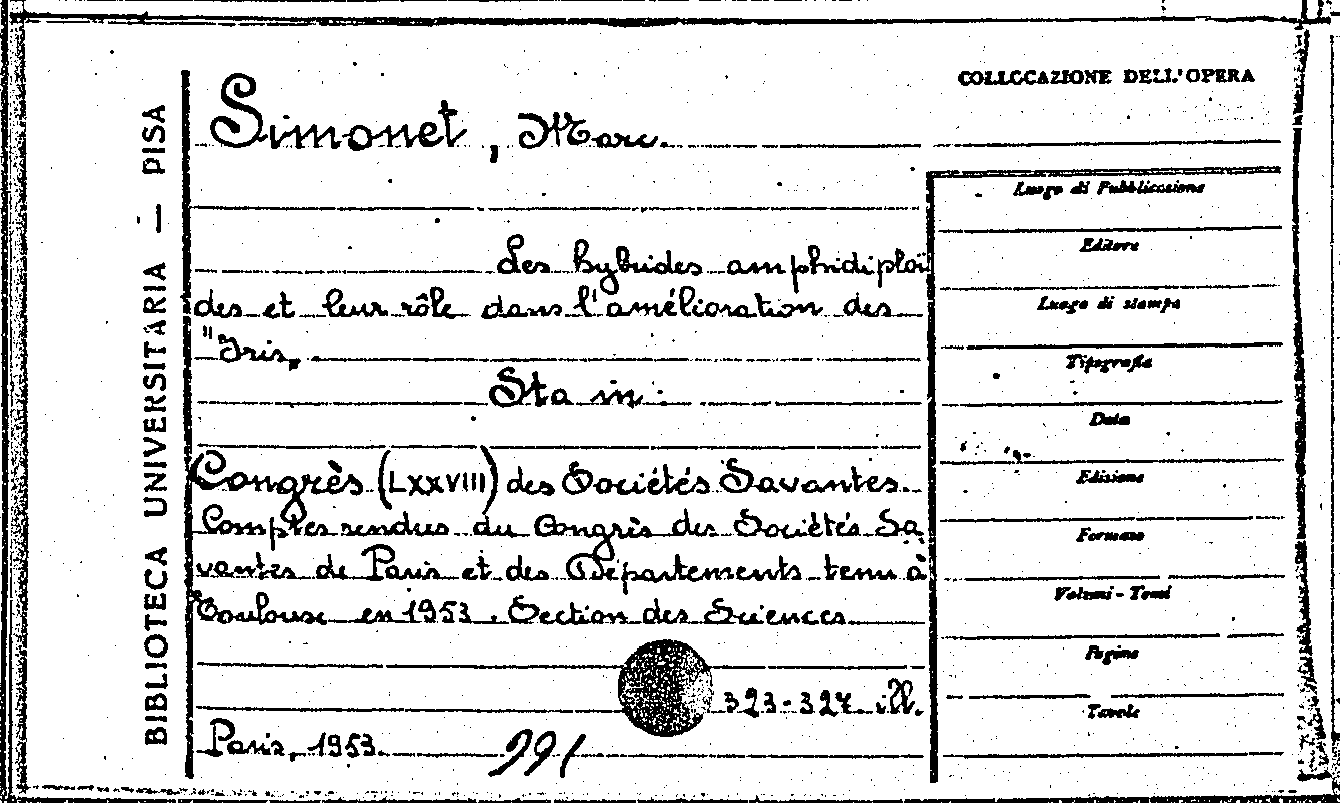 BIBLIOTECA UNIVERSITARIA — PISA
COLLOCAZIONE DELL'OPERA
Simonet, Marc.
Les hybrides amphidiploï
des et leur rôle dans l'amélioration des
"Iris„
Sta in:
Congrès (LXXVIII) des Sociétés Savantes.
Comptes rendus du Congrès des Sociétés Sa
vantes de Paris et des Départements tenu à
Toulouse en 1953. Section des Sciences
323-327 ill.
Paris, 1953.
991
Luogo di Pubblicazione
Editore
Luogo di stampa
Tipografia
Data
Edizione
Formato
Volumi - Tomi
Pagine
Tavole